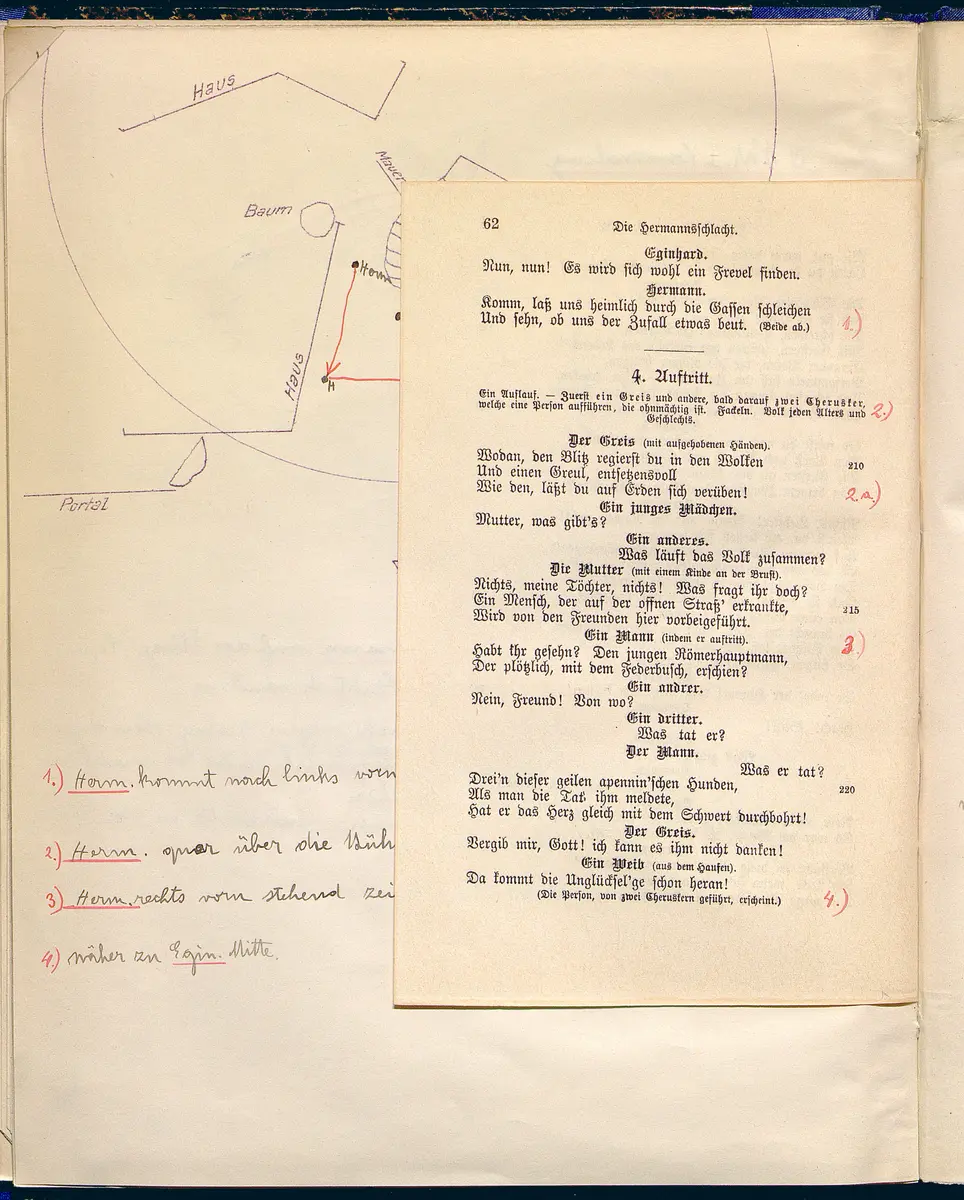 Haus
Mauer
Baum
Herm
Haus
H
Portal
1.) Herm. kommt nach links vorn
2.) Herm. quer über die Büh
3) Herm. rechts vorn stehend zei
4.) näher zu Egin. Mitte.
62 Die Hermannsschlacht.
Eginhard.
Nun, nun! Es wird sich wohl ein Frevel finden.
Hermann.
Komm, laß uns heimlich durch die Gassen schleichen
Und sehn, ob uns der Zufall etwas beut. (Beide ab.) 1.)
4. Auftritt.
Ein Auflauf. — Zuerst ein Greis und andere, bald darauf zwei Cherusker,
welche eine Person aufführen, die ohnmächtig ist. Fackeln. Volk jeden Alters und 2.)
Geschlechts.
Der Greis (mit aufgehobenen Händen).
Wodan, den Blitz regierst du in den Wolken 210
Und einen Greul, entsetzensvoll
Wie den, läßt du auf Erden sich verüben! 2.a.)
Ein junges Mädchen.
Mutter, was gibt's?
Ein anderes.
Was läuft das Volk zusammen?
Die Mutter (mit einem Kinde an der Brust).
Nichts, meine Töchter, nichts! Was fragt ihr doch?
Ein Mensch, der auf der offnen Straß' erkrankte, 215
Wird von den Freunden hier vorbeigeführt.
Ein Mann (indem er auftritt). 3.)
Habt Ihr gesehn? Den jungen Römerhauptmann,
Der plötzlich, mit dem Federbusch, erschien?
Ein andrer.
Nein, Freund! Von wo?
Ein dritter.
Was tat er?
Der Mann.
Was er tat?
Drei'n dieser geilen apennin'schen Hunden, 220
Als man die Tat ihm meldete,
Hat er das Herz gleich mit dem Schwert durchbohrt!
Der Greis.
Vergib mir, Gott! ich kann es ihm nicht danken!
Ein Weib (aus dem Haufen).
Da kommt die Unglücksel'ge schon heran!
(Die Person, von zwei Cheruskern geführt, erscheint.) 4.)